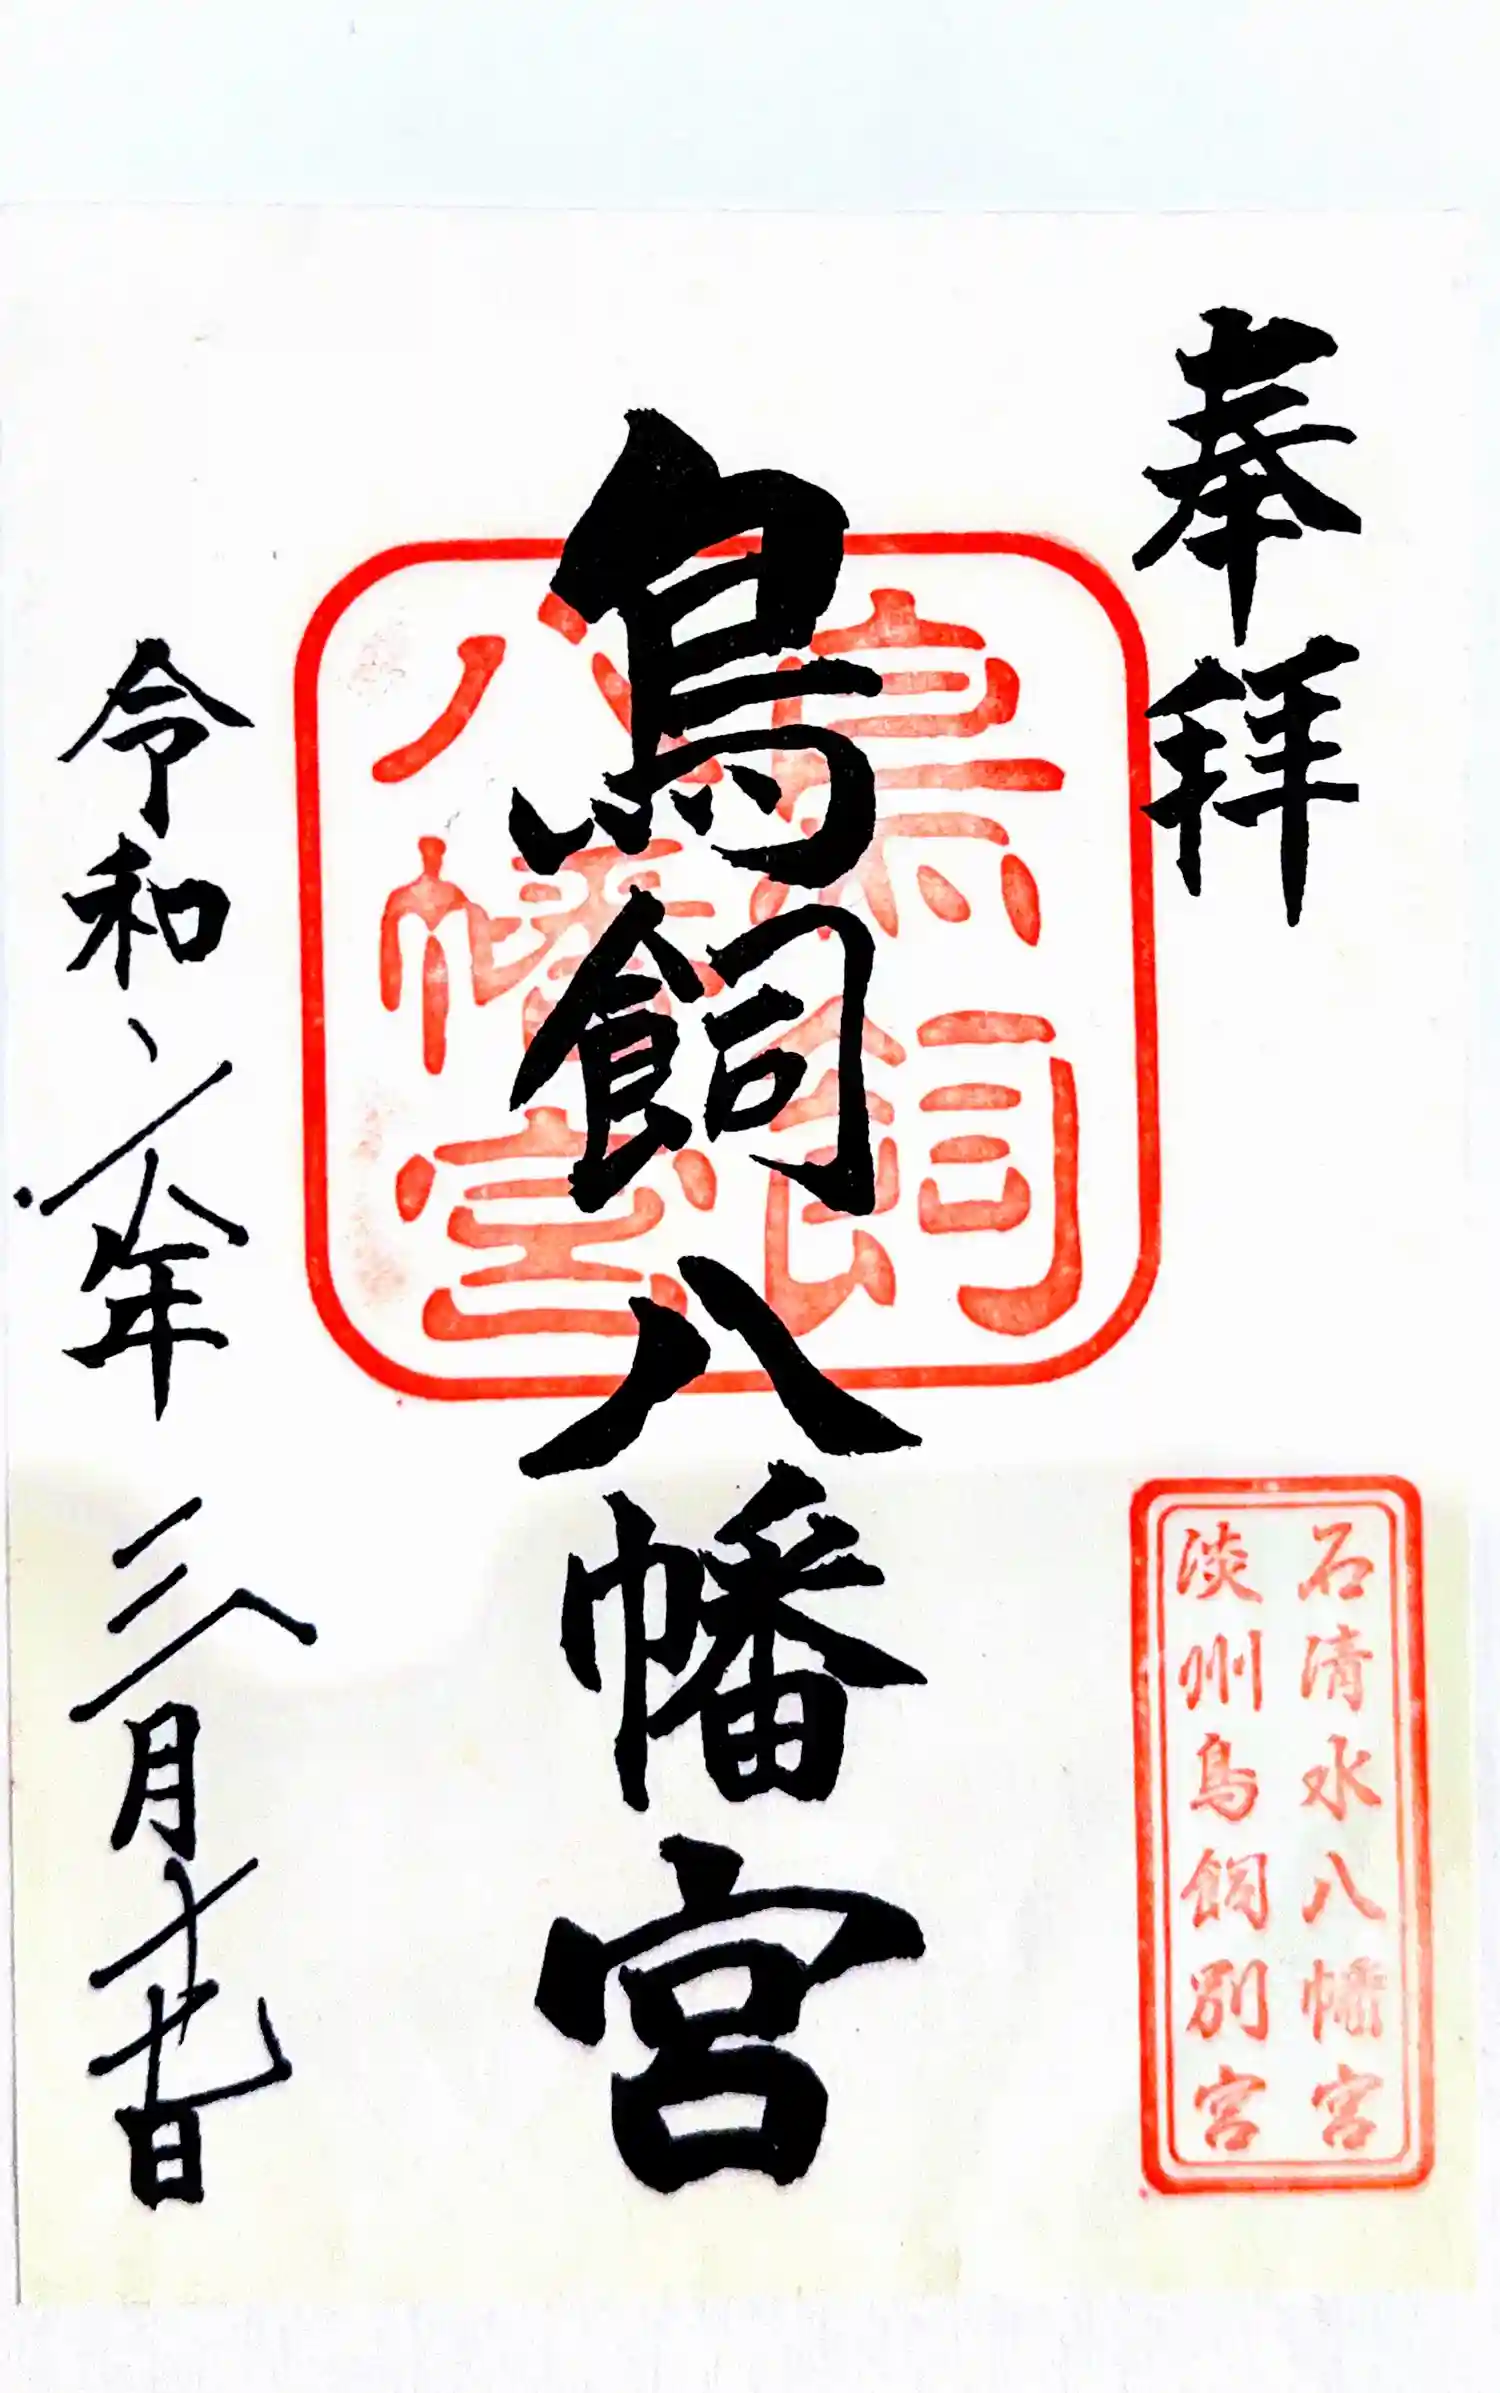 奉拝
石清水八幡宮
淡州鳥飼別宮
鳥飼八幡宮
鳥飼
八幡宮
令和六年三月十七日